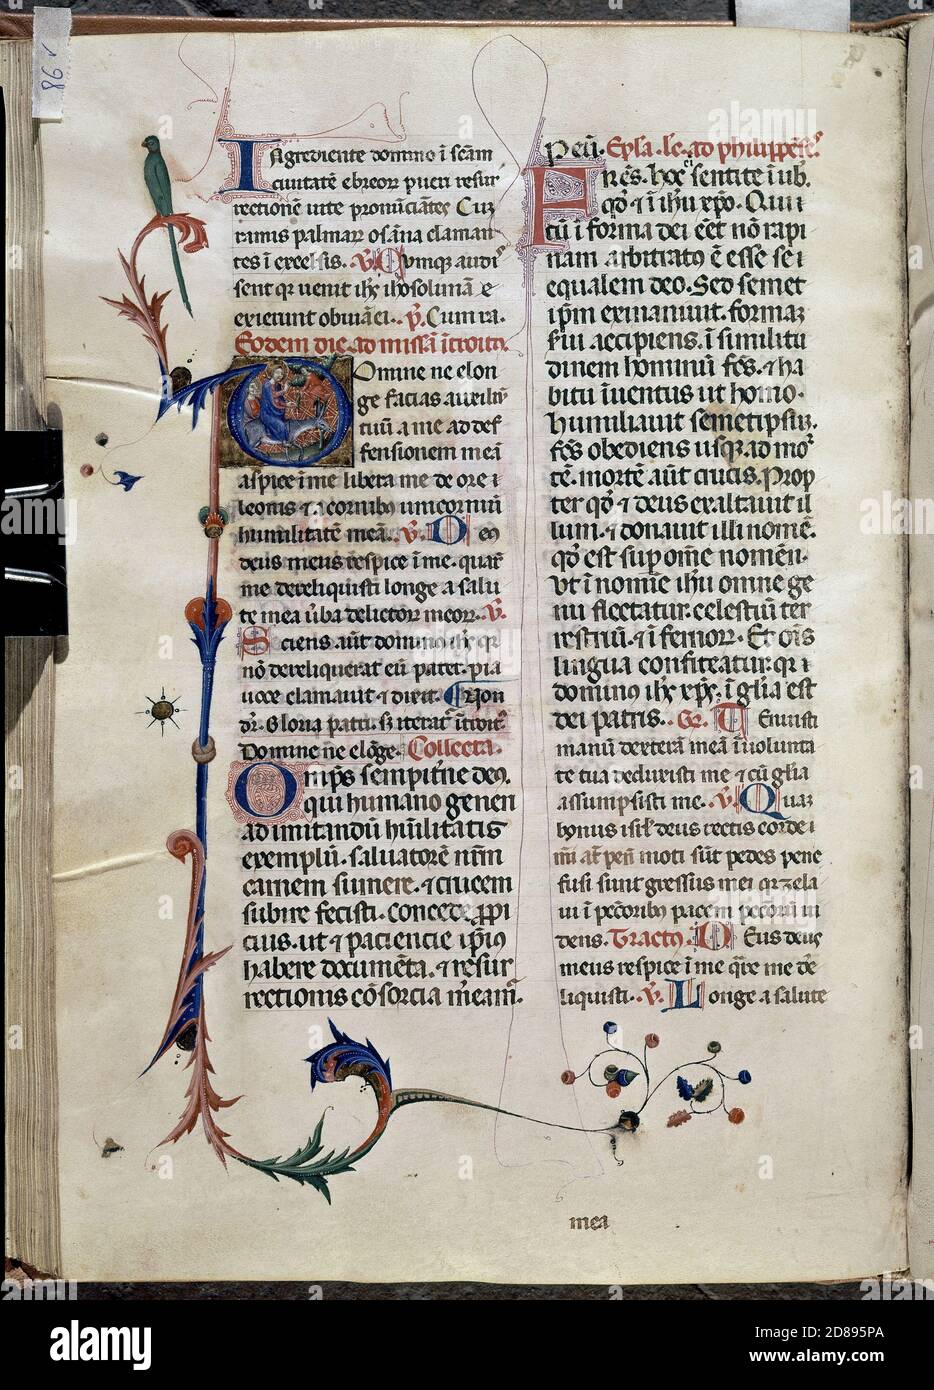 86v
Ingrediente domino ī scām
civitatē ebreoꝝ pueri resur
rectionē vite pronūciātes Cuꝫ
ramis palmaꝝ osāna claman
tes ī excelsis. ℣. Cumque audi
sent qꝛ venit ih̄s ih̄osolimā e
exierunt obviā ei. ℟. Cum ra.
Eodem die ad missā ītroitꝰ.
Domine ne elon
ge facias auxiliū
tuū a me ad def
fensionem meā
aspice ī me libera me de ore
leonis et a cornibꝰ unicornuū
humilitatē meā. ℣. Deꝰ
deus meus respice ī me. quaꝛ
me dereliquisti longe a salu
te mea v̄ba delictoꝝ meoꝝ. ℣.
Sciens aūt dominꝰ ih̄s qꝛ
nō dereliquerat eū pater. pia
voce clamavit et dixit.
Gloria patri. ītroitꝰ
Domine ne elōge. Collecta.
Omp̄s sempitn̄e deꝰ.
qui humano generi
ad imitandū hūilitatis
exemplū. salvatorē nr̄m
carnem sumere. et crucem
subire fecisti. concede ꝓpi
cius. ut et paciencie ip̄ius
habere documēta. et resur
rectionis cōsorcia m̄eamꝰ.
Per eū. Epl̄a. le. ad philippēses.
Fr̄es. hoc sentite ī vob̄.
qd̄ et ī ih̄u xp̄o. Qui
cū ī forma dei eēt nō rapi
nam arbitratꝰ ē esse se
equalem deo. Sed semet
ip̄m exinanivit. formaꝫ
servi accipiens. ī similitu
dinem hominū fc̄s. et ha
bitu īventus ut homo.
humiliavit semetipsuꝫ.
fc̄s obediens usqꝫ ad mor
tē. mortē aūt crucis. Prop
ter qd̄ et deus exaltavit il
lum. et donavit illi nomē.
qd̄ est sup om̄e nomen.
Ut ī nomīe ih̄u omne ge
nu flectatur. celestiū ter
restriū. et īfernoꝝ. Et oīs
lingua confiteatur. qꝛ
dominꝰ ih̄s xp̄s. ī glīa est
dei patris. Gr. Tenuisti
manū dexterā meā ī volunta
te tua deduxisti me et cū glīa
assumpsisti me. ℣. Quaꝫ
bonus isrl̄ deus rectis corde
mei aūt pene moti sūt pedes pene
fusi sunt gressus mei qꝛ zela
vi ī pecc̄oribꝰ pacem pecc̄orū vi
dens. Tractꝰ. Deus deus
meus respice ī me quare me de
liquisti. ℣. Longe a salute
mea
alamy
Image ID: 2D895PA
www.alamy.com